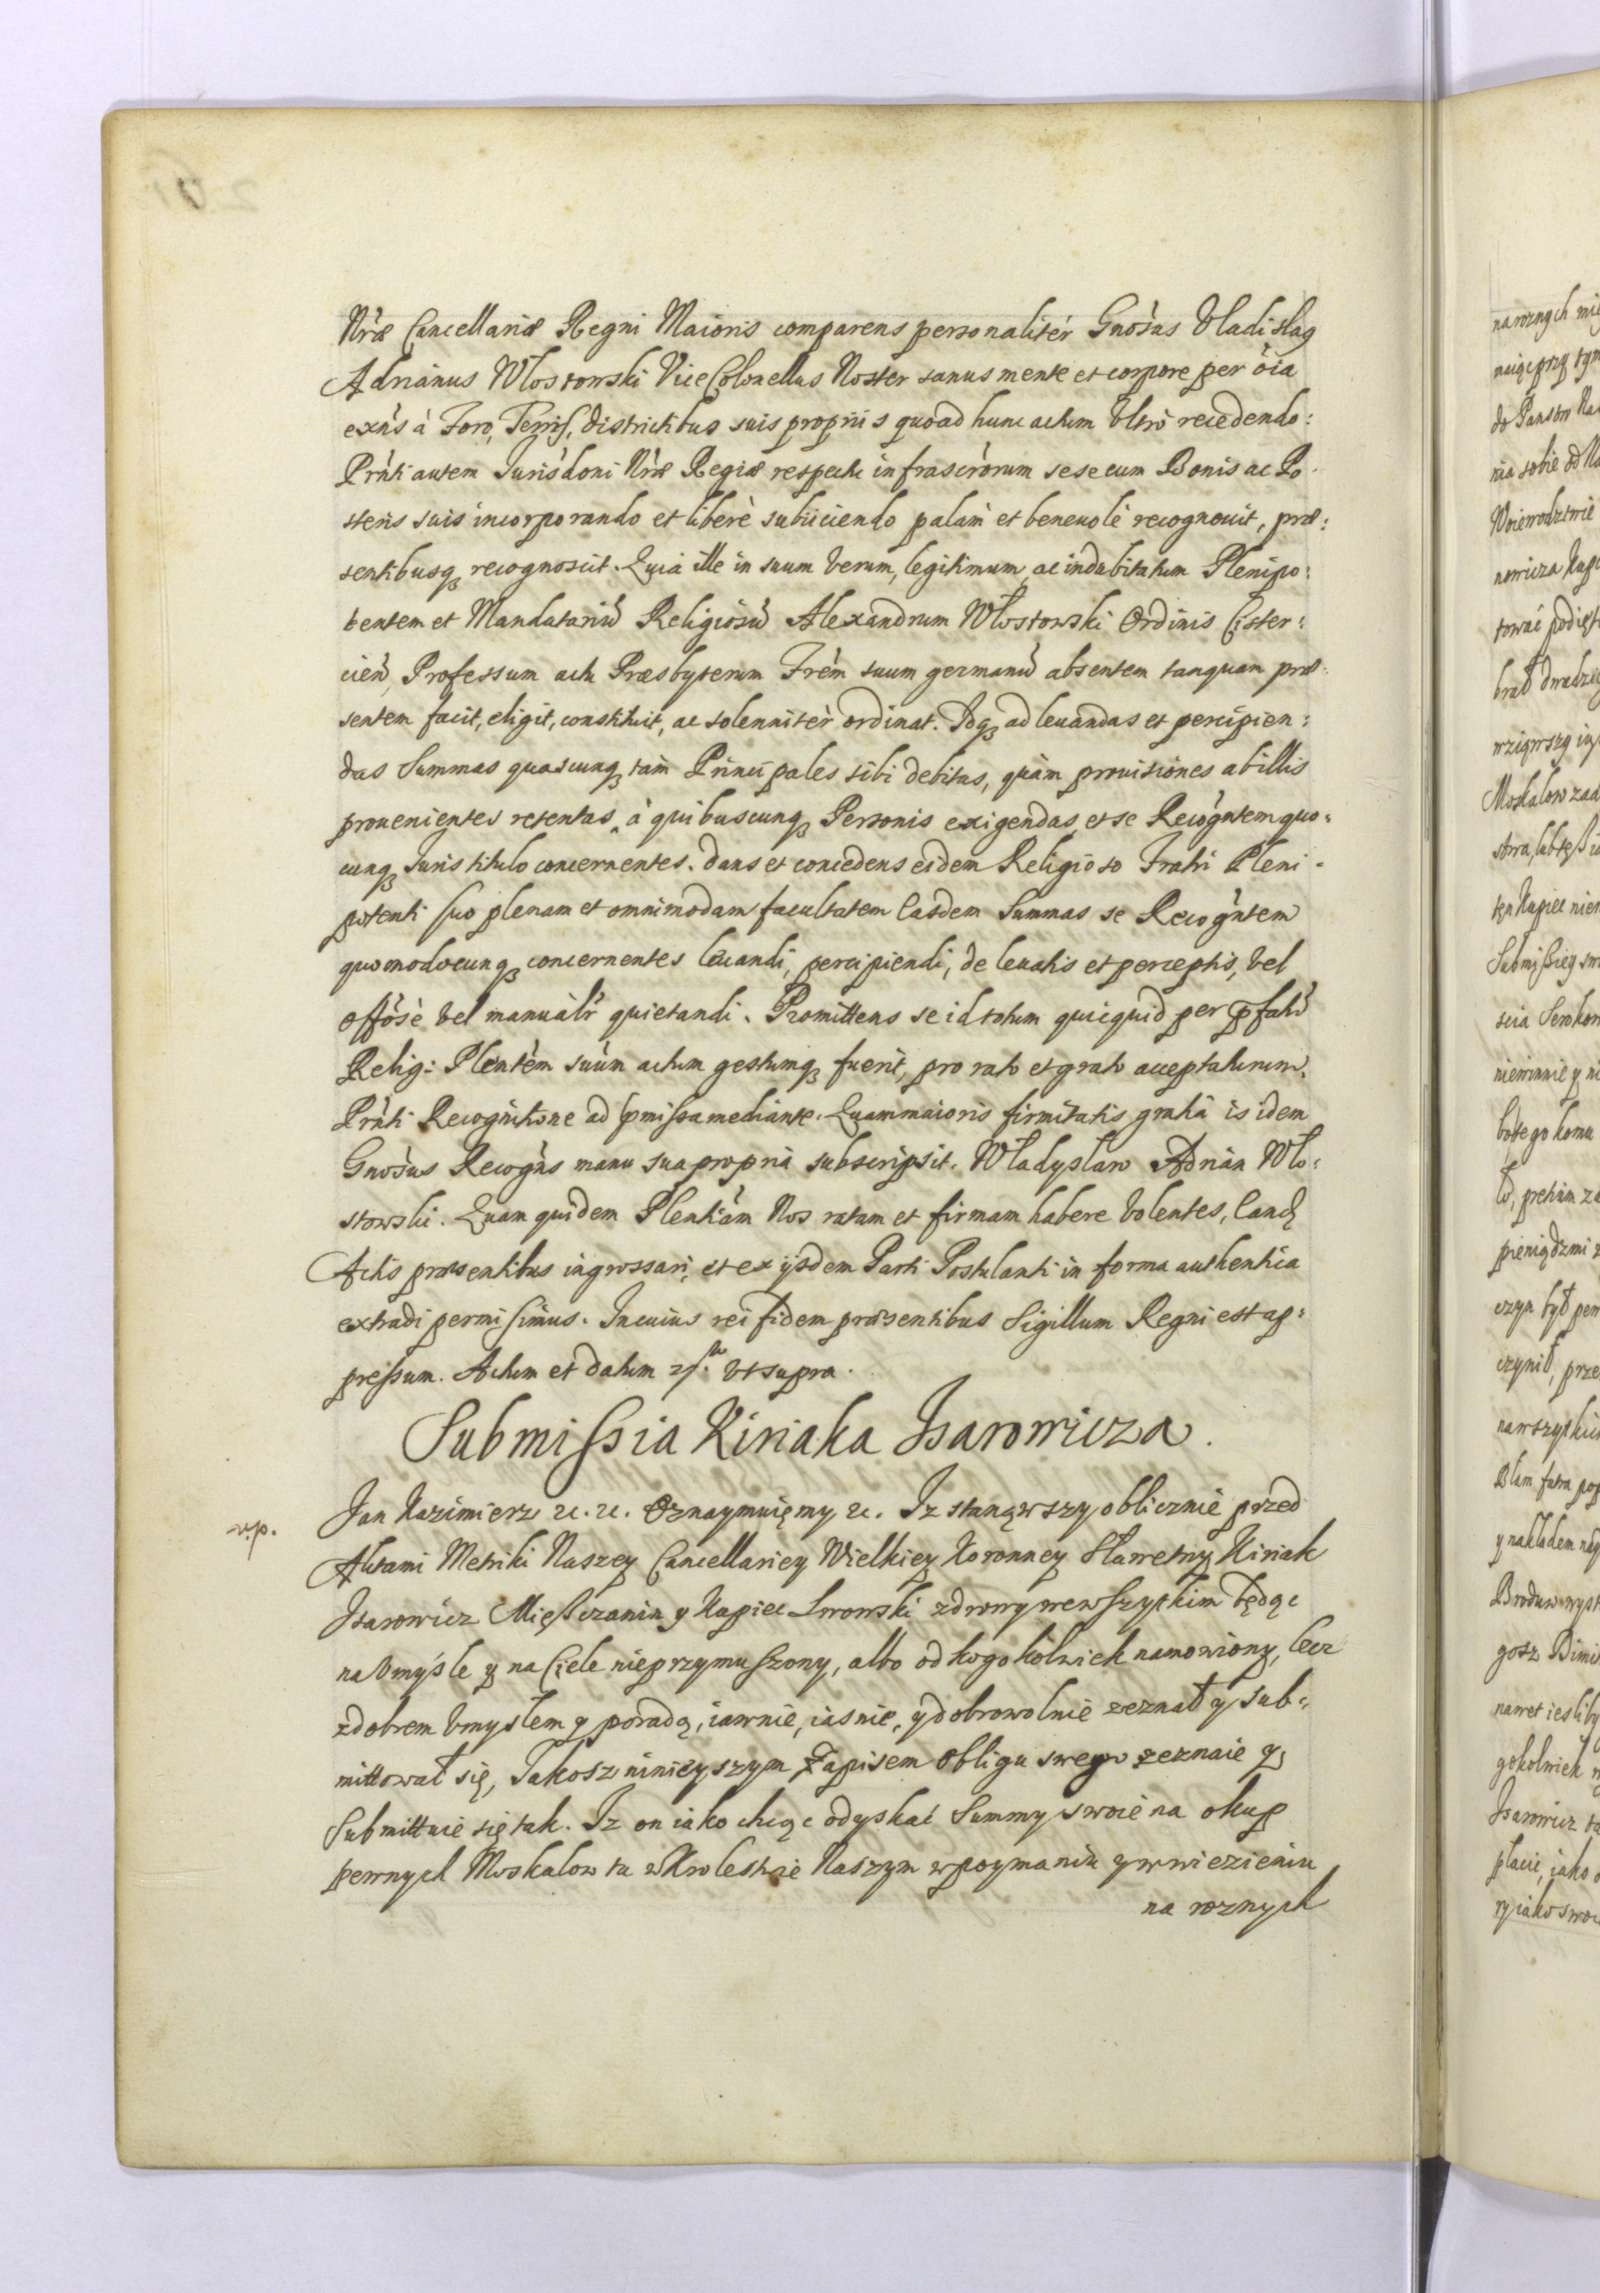 Nræ Cancellariæ Regni Maioris comparens personalitèr Gnosus Vladislaq
Adrianus Wlostowski ViceColonellus Noster sanus mente et corpore per oia
exns à Foro, Terris, Districtibus suis proprijs quoad hunc actum Vltrò recedendo:
Prnti autem Jurisdoni Nræ Regiæ respectu infrascrorum sese cum Bonis ac Po-
steris suis incorporando et liberè subijciendo palàm et beneuolè recognouit, præ:
sentibusq recognoscit. Quia ille in suum Verum, legitimum, ac indubitatum Plenipo:
tentem et Mandatariu Religiosu Alexandrum Włostowski Ordinis Cister:
cien, Professum actu Præsbyterum Frem suum germanu absentem tanquam præ-
sentem facit, eligit, constituit, ac solennitèr ordinat. Idq ad leuandas et percipien:
das Summas quascunq tàm Principales sibi debitas, quàm prouisiones ab illis
prouenientes retentas, à quibuscunq Personis exigendas et se Recogntem quo:
cunq Juris titulo concernentes. Dans et concedens eidem Religioso Fratri Pleni-
potenti suo plenam et omnimodam facultatem Easdem Summas se Recogntem
quomodocunq concernentes leuandi, percipiendi, de leuatis et perceptis, Vel
offosè Vel manualr quietandi. Promittens se id totum quicquid per pfatu
Relig: Plentem suum actum gestumq fuerit, pro rato et grato accepturum.
Prnti Recognitone ad pmissa mediante. Quam maioris firmitatis gratiâ is idem
Gnosus Recogns manu sua propriâ subscripsit. Władysław Adrian Wło:
stowski. Quam quidem Plentiam Nos ratam et firmam habere Volentes, Eandẽ
Actis præsentibus ingrossari, et ex ijsdem Parti Postulanti in forma authentica
extradi permisimus. In cuius rei fidem præsentibus Sigillum Regni est ap:
pressum. Actum et datum Vt supra.
Submissia Kiriaka Isarowicza.
v.p.
Jan Kazimierz &c. &c. Oznaymuięmy &c. Iz stanąwszy oblicznie przed
Aktami Metriki Naszey Cancellariey Wielkiey Koronney Sławetny Kiriak
Isarowicz Mięszczanin y Kupiec Lwowski zdrowy wewszytkim będąc
na Vmyśle y na Ciele nieprzymuszony, albo od kogokolwiek namowiony, lecz
z dobrem Vmysłem y poradą, iawnie, iasnie, y dobrowolnie zeznał y sub-
mittował się, Jakosz ninieyszym Zapisem Obligu swego zeznaie y
Submittuie się tak. Iz on iako chcąc odyskać Summy swoie na okup
pewnych Moskalow tu w Krolestwie Naszym w poymaniu y w wiezieniu
na roznych